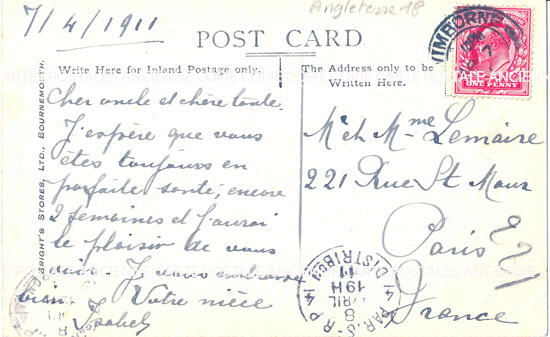 7/4/1911
Angleterre 18
POST CARD.
WIMBORNE
ONE PENNY
Write Here for Inland Postage only.
The Address only to be
Written Here.
BRIGHT'S STORES, LTD., BOURNEMOUTH.
Cher oncle et chère tante
J'espère que vous
êtes toujours en
parfaite santé, encore
2 semaines et j'aurai
le plaisir de vous
voir. Je vous embrasse
bien Votre nièce
Isabel
Mr et Mme Lemaire
221 Rue St Maur
Paris
France
DISTRIBON
11
19H
8
AVRIL
CARTE POSTALES ANCIENNE